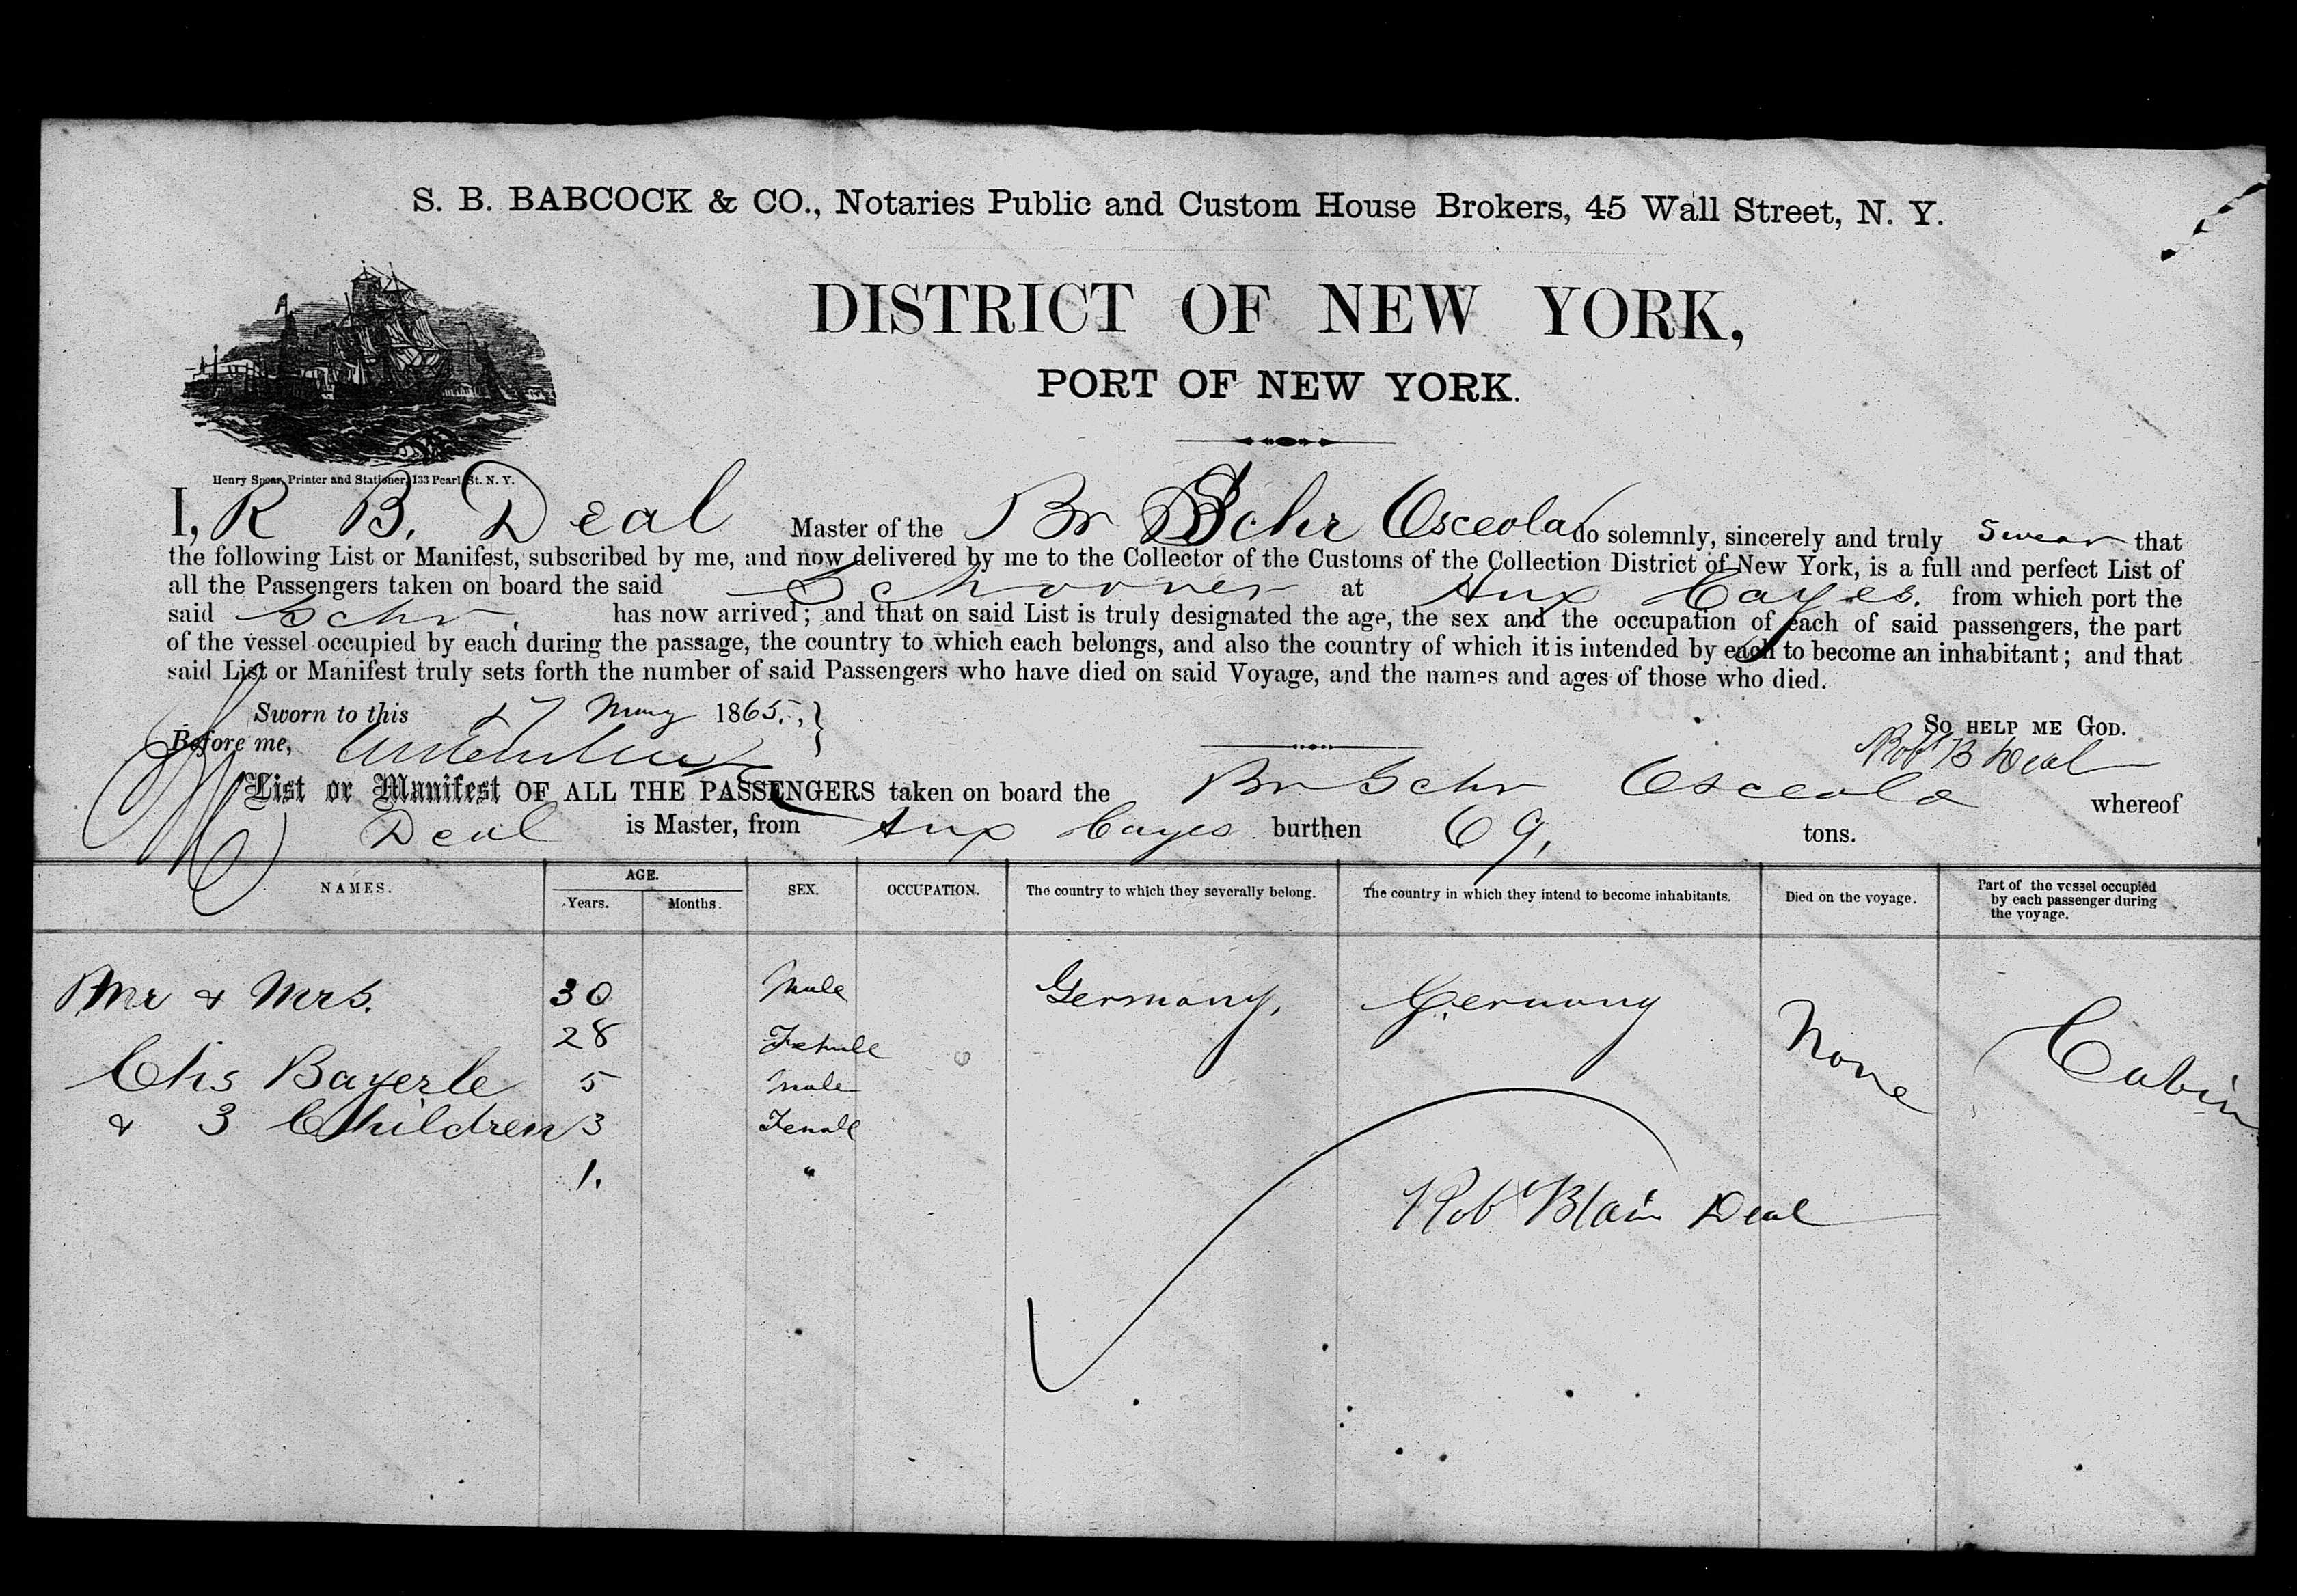 S. B. BABCOCK & CO., Notaries Public and Custom House Brokers, 45 Wall Street, N. Y.
DISTRICT OF NEW YORK,
PORT OF NEW YORK.
Henry Spear, Printer and Stationer, 133 Pearl St. N. Y.
I, R B. Deal Master of the Br Schr Osceola do solemnly, sincerely and truly swear that
the following List or Manifest, subscribed by me, and now delivered by me to the Collector of the Customs of the Collection District of New York, is a full and perfect List of
all the Passengers taken on board the said Schooner at Aux Cayes. from which port the
said Schr. has now arrived; and that on said List is truly designated the age, the sex and the occupation of each of said passengers, the part
of the vessel occupied by each during the passage, the country to which each belongs, and also the country of which it is intended by each to become an inhabitant; and that
said List or Manifest truly sets forth the number of said Passengers who have died on said Voyage, and the names and ages of those who died.
Sworn to this 17 May 1865.,
So help me God.
Before me,
Robt B Deal
List or Manifest OF ALL THE PASSENGERS taken on board the Br Schr Osceola whereof
Deal is Master, from Aux Cayes burthen 69, tons.
NAMES. AGE. SEX. OCCUPATION. The country to which they severally belong. The country in which they intend to become inhabitants. Died on the voyage. Part of the vessel occupied by each passenger during the voyage.
Years. Months.
Mr & Mrs. 30 Male Germany, Germany None Cabin
28 Female
Chs Bayerle 5 Male
& 3 Children 3 Female
1. "
Robt Blair Deal